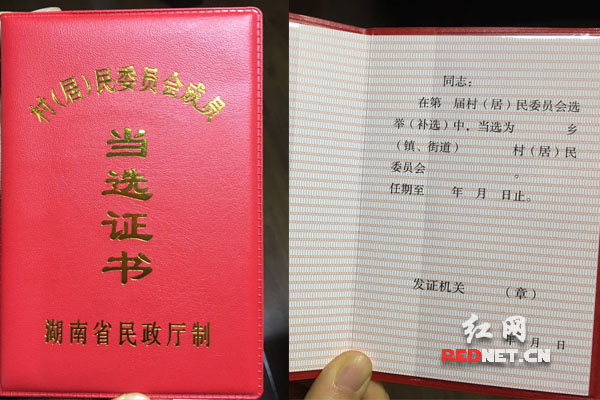 村(居)民委员会成员
当选证书
湖南省民政厅制
同志：
在第 届村（居）民委员会选
举（补选）中，当选为 乡
（镇、街道） 村（居）民
委员会 。
任期至 年 月 日止。
发证机关 （章）
年 月 日
红网
REDNET.CN